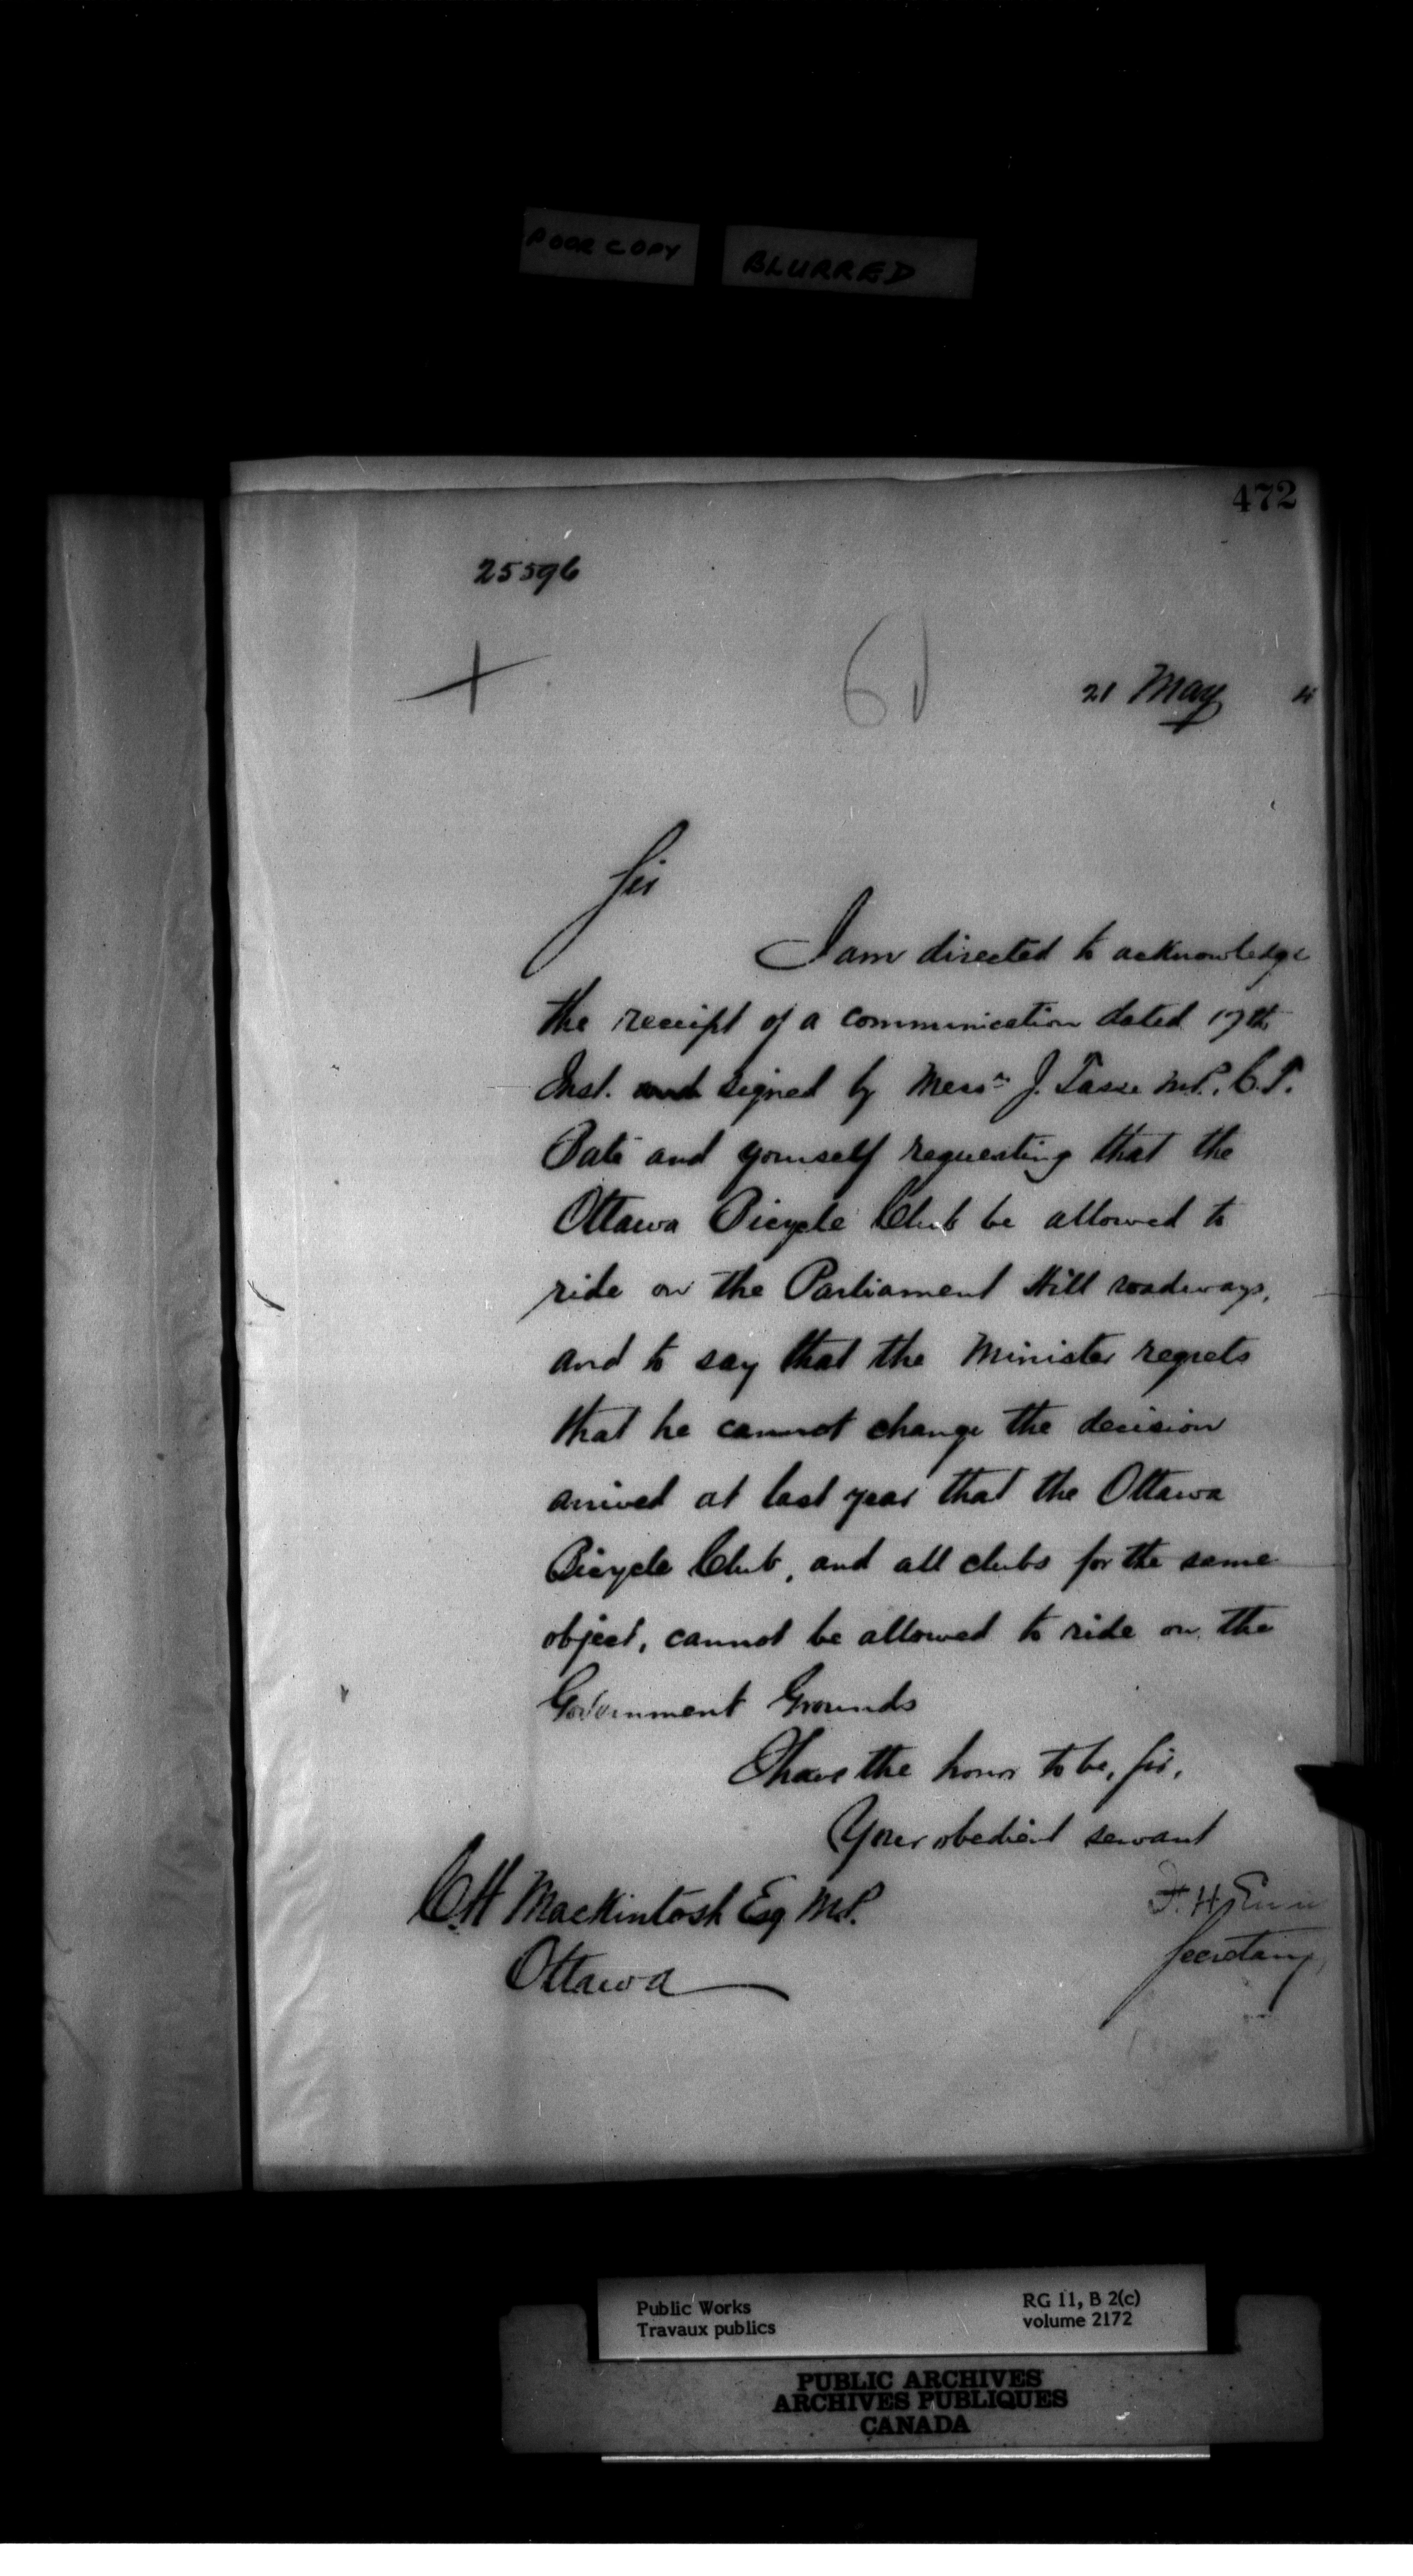 POOR COPY BLURRED
472
25596
21 May 4
Sir
I am directed to acknowledge
the receipt of a communication dated 17th
Inst. and signed by Messrs J. Tasse M.P., C.T.
Bate and yourself requesting that the
Ottawa Bicycle Club be allowed to
ride on the Parliament Hill roadways,
and to say that the Minister regrets
that he cannot change the decision
arrived at last year that the Ottawa
Bicycle Club, and all clubs for the same
object, cannot be allowed to ride on the
Government Grounds
I have the honor to be, Sir,
Your obedient servant
F. H. Ennis
Secretary
C H Mackintosh Esq M.P.
Ottawa
Public Works RG 11, B 2(c)
Travaux publics volume 2172
PUBLIC ARCHIVES
ARCHIVES PUBLIQUES
CANADA